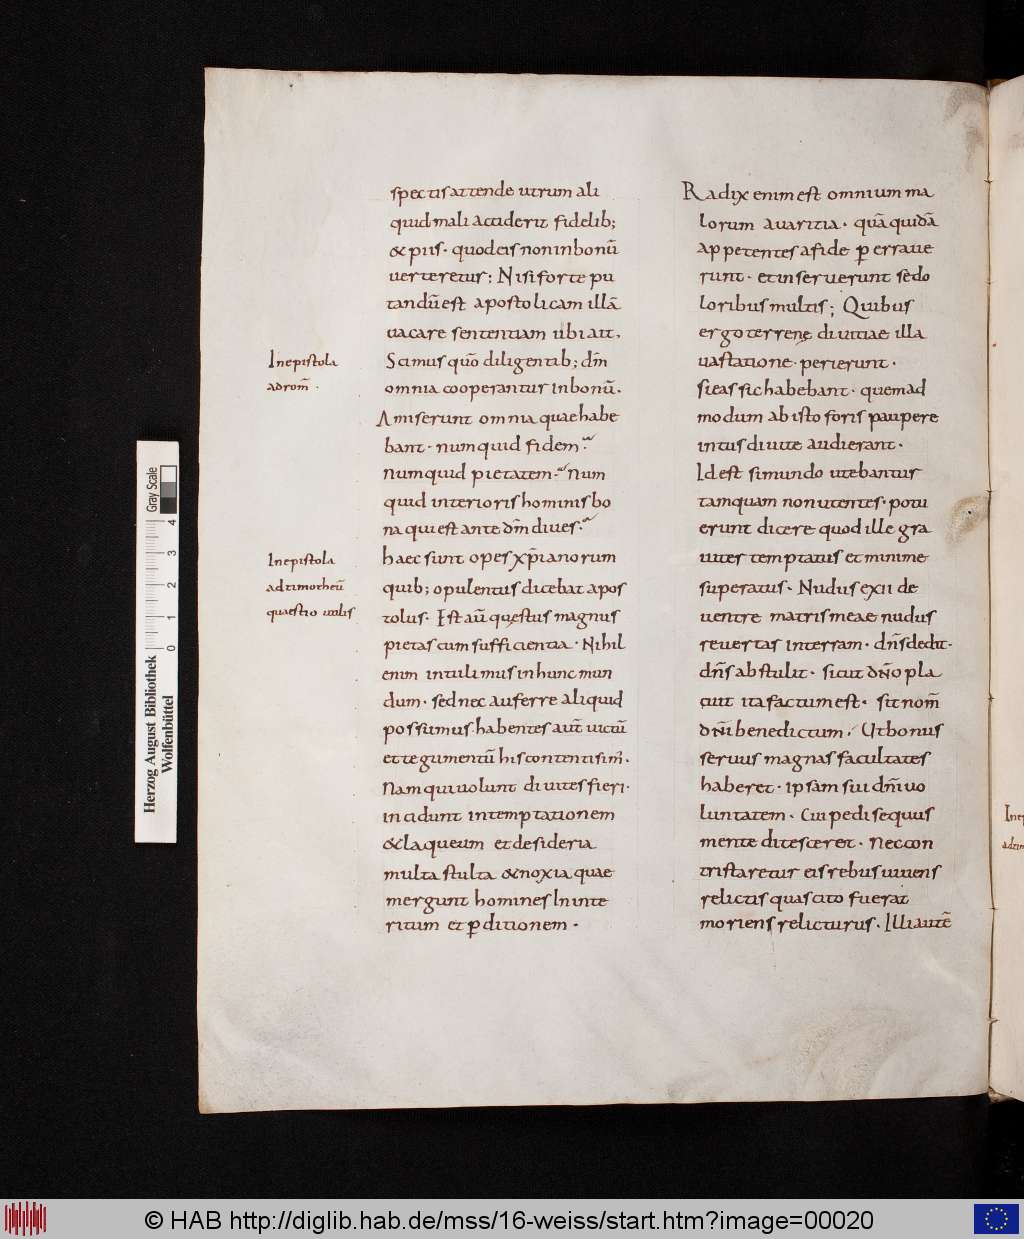 spectis attende utrum ali
quid mali acciderit fidelib;
& piis · quod eis non in bonū
uerteretur; Nisi forte pu
tandū est apostolicam illā
uacare sententiam ubi ait,
Scimus quō diligentib; dm̄
omnia cooperantur in bonū.
Amiserunt omnia quae habe
bant · numquid fidem?
Numquid pietatem? Num
quid interioris hominis bo
na qui est ante dm̄ diues?
haec sunt opes xp̄ianorum
quib; opulentus dicebat apos
tolus · Est aū quęstus magnus
pietas cum sufficientia · Nihil
enim intulimus in hunc mun
dum · sed nec auferre aliquid
possumus · habentes aut̄ uictū
et tegumentū his contenti sim̄ ·
Nam qui uolunt diuites fieri ·
incidunt in temptationem
& laqueum et desideria
multa stulta & noxia quae
mergunt homines In inte
ritum et ꝑditionem ·
In epistola
ad rom̄ ·
In epistola
ad timotheū
quaestio utilis
Radix enim est omnium ma
lorum auaritia · quā quidā
appetentes a fide ꝑerraue
runt · et inseruerunt se dо
loribus multis; Quibus
ergo terrenę diuitiae illa
uastatione · perierunt ·
si eas sic habebant · quemad
modum ab isto foris paupere
intus diuite audierant ·
Id est si mundo utebantur
tamquam non utentes · potu
erunt dicere quod ille gra
uiter temptatus et minime
superatus · Nudus exii de
uentre matris meae nudus
reuertar in terram · dn̄s dedit ·
dn̄s abstulit · sicut dn̄o pla
cuit ita factum est · sit nom̄
dn̄i benedictum · Ut bonus
seruus magnas facultates
haberet · ipsam sui dn̄i uo
luntatem · Cui pedisequus
mente ditesceret · Nec con
tristaretur eis rebus uiuens
relictis quas cito fuerat
moriens relicturus · Illi autē
Gray Scale
0 1 2 3 4
Herzog August Bibliothek
Wolfenbüttel
© HAB http://diglib.hab.de/mss/16-weiss/start.htm?image=00020